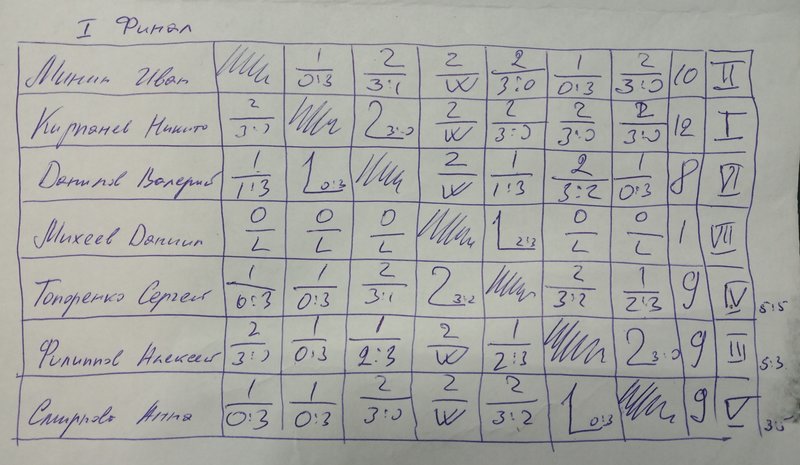 I Финал
Минин Иван 1 0:3 2 3:1 2 W 2 3:0 1 0:3 2 3:0 10 II
Кирпанев Никита 2 3:0 2 3:0 2 W 2 3:0 2 3:0 2 3:0 12 I
Данилов Валерий 1 1:3 1 0:3 2 W 1 1:3 2 3:2 1 0:3 8 VI
Михеев Даниил 0 L 0 L 0 L 1 2:3 0 L 0 L 1 VII
Топоренко Сергей 1 0:3 1 0:3 2 3:1 2 3:2 2 3:2 1 2:3 9 IV 5:5
Филиппов Алексей 2 3:0 1 0:3 1 2:3 2 W 1 2:3 2 3:0 9 III 5:3
Смирнова Анна 1 0:3 1 0:3 2 3:0 2 W 2 3:2 1 0:3 9 V 3:5